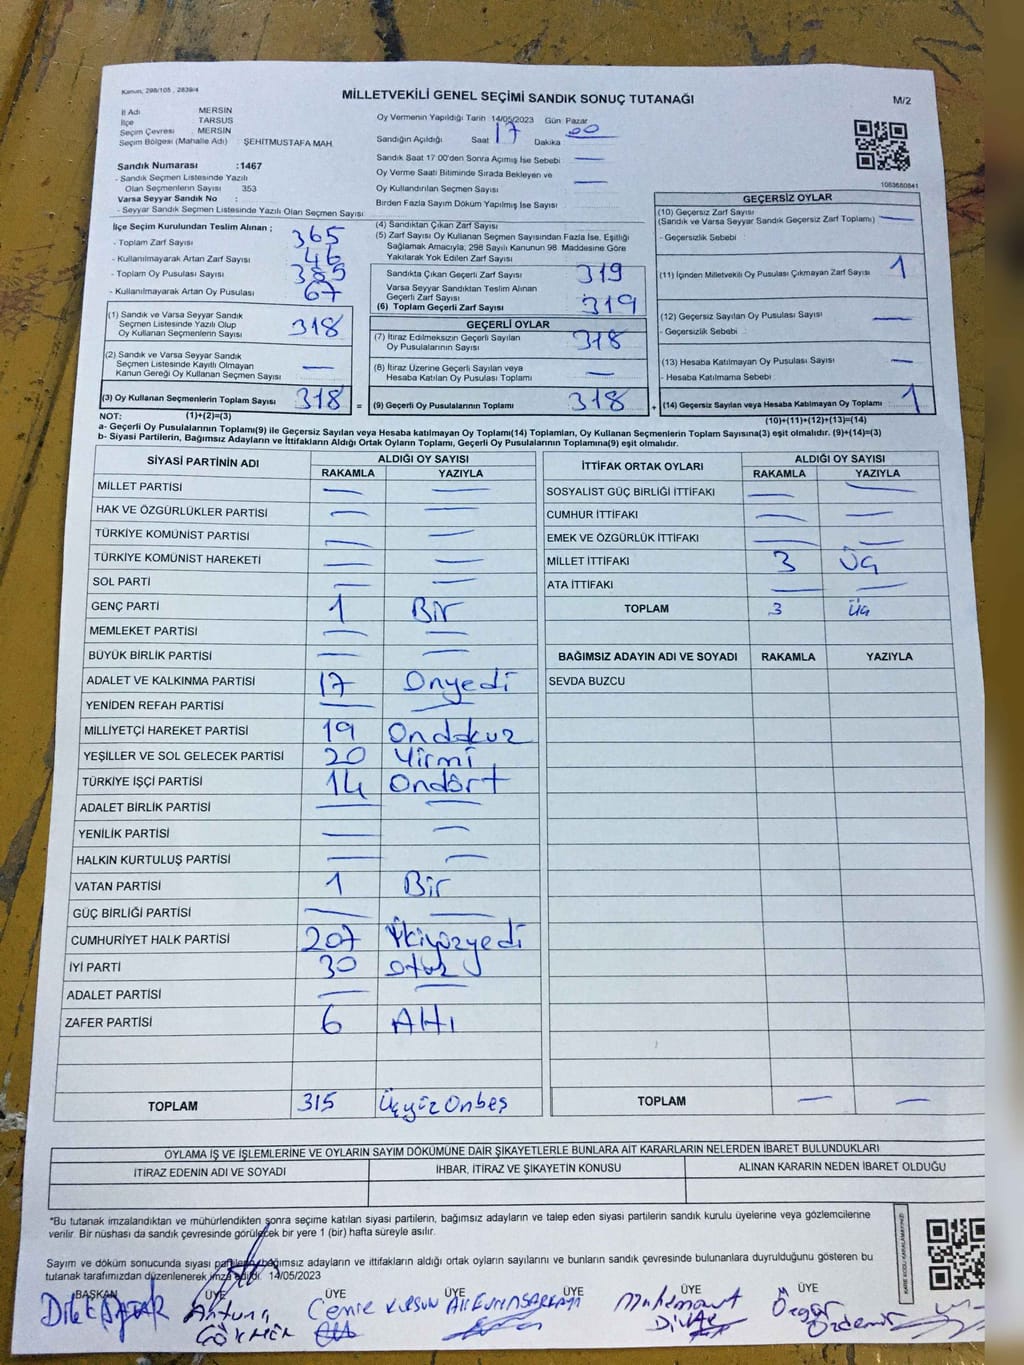 Kanun; 298/105 , 2839/4
MİLLETVEKİLİ GENEL SEÇİMİ SANDIK SONUÇ TUTANAĞI
M/2
İl Adı MERSİN
İlçe TARSUS
Seçim Çevresi MERSİN
Seçim Bölgesi (Mahalle Adı) ŞEHİTMUSTAFA MAH.
Sandık Numarası :1467
- Sandık Seçmen Listesinde Yazılı
Olan Seçmenlerin Sayısı 353
Varsa Seyyar Sandık No :
- Seyyar Sandık Seçmen Listesinde Yazılı Olan Seçmen Sayısı
Oy Vermenin Yapıldığı Tarih 14/05/2023 Gün: Pazar
Sandığın Açıldığı Saat 17 Dakika 00
Sandık Saat 17:00'den Sonra Açımış İse Sebebi —
Oy Verme Saati Bitiminde Sırada Bekleyen ve
Oy Kullandırılan Seçmen Sayısı —
Birden Fazla Sayım Döküm Yapılmış İse Sayısı
1083680841
İlçe Seçim Kurulundan Teslim Alınan ;
- Toplam Zarf Sayısı 365
- Kullanılmayarak Artan Zarf Sayısı 46
- Toplam Oy Pusulası Sayısı 385
- Kullanılmayarak Artan Oy Pusulası 67
(1) Sandık ve Varsa Seyyar Sandık
Seçmen Listesinde Yazılı Olup
Oy Kullanan Seçmenlerin Sayısı 318
(2) Sandık ve Varsa Seyyar Sandık
Seçmen Listesinde Kayıtlı Olmayan
Kanun Gereği Oy Kullanan Seçmen Sayısı —
(3) Oy Kullanan Seçmenlerin Toplam Sayısı 318 =
(4) Sandıktan Çıkan Zarf Sayısı
(5) Zarf Sayısı Oy Kullanan Seçmen Sayısından Fazla İse, Eşitliği
Sağlamak Amacıyla; 298 Sayılı Kanunun 98 Maddesine Göre
Yakılarak Yok Edilen Zarf Sayısı
Sandıkta Çıkan Geçerli Zarf Sayısı 319
Varsa Seyyar Sandıktan Teslim Alınan
Geçerli Zarf Sayısı
(6) Toplam Geçerli Zarf Sayısı 319
GEÇERLİ OYLAR
(7) İtiraz Edilmeksizin Geçerli Sayılan
Oy Pusulalarının Sayısı 318
(8) İtiraz Üzerine Geçerli Sayılan veya
Hesaba Katılan Oy Pusulası Toplamı —
(9) Geçerli Oy Pusulalarının Toplamı 318 +
GEÇERSİZ OYLAR
(10) Geçersiz Zarf Sayısı
(Sandık ve Varsa Seyyar Sandık Geçersiz Zarf Toplamı) —
- Geçersizlik Sebebi :
(11) İçinden Milletvekili Oy Pusulası Çıkmayan Zarf Sayısı 1
(12) Geçersiz Sayılan Oy Pusulası Sayısı —
- Geçersizlik Sebebi :
(13) Hesaba Katılmayan Oy Pusulası Sayısı —
- Hesaba Katılmama Sebebi :
(14) Geçersiz Sayılan veya Hesaba Katılmayan Oy Toplamı 1
NOT: (1)+(2)=(3)
(10)+(11)+(12)+(13)=(14)
a- Geçerli Oy Pusulalarının Toplamı(9) ile Geçersiz Sayılan veya Hesaba katılmayan Oy Toplamı(14) Toplamları, Oy Kullanan Seçmenlerin Toplam Sayısına(3) eşit olmalıdır. (9)+(14)=(3)
b- Siyasi Partilerin, Bağımsız Adayların ve İttifakların Aldığı Ortak Oyların Toplamı, Geçerli Oy Pusulalarının Toplamına(9) eşit olmalıdır.
SİYASİ PARTİNİN ADI ALDIĞI OY SAYISI
RAKAMLA YAZIYLA
MİLLET PARTİSİ — —
HAK VE ÖZGÜRLÜKLER PARTİSİ — —
TÜRKİYE KOMÜNİST PARTİSİ — —
TÜRKİYE KOMÜNİST HAREKETİ — —
SOL PARTİ — —
GENÇ PARTİ 1 Bir
MEMLEKET PARTİSİ — —
BÜYÜK BİRLİK PARTİSİ — —
ADALET VE KALKINMA PARTİSİ 17 Onyedi
YENİDEN REFAH PARTİSİ — —
MİLLİYETÇİ HAREKET PARTİSİ 19 Ondokuz
YEŞİLLER VE SOL GELECEK PARTİSİ 20 Yirmi
TÜRKİYE İŞÇİ PARTİSİ 14 Ondört
ADALET BİRLİK PARTİSİ — —
YENİLİK PARTİSİ — —
HALKIN KURTULUŞ PARTİSİ — —
VATAN PARTİSİ 1 Bir
GÜÇ BİRLİĞİ PARTİSİ — —
CUMHURİYET HALK PARTİSİ 207 İkiyüzyedi
İYİ PARTİ 30 otuz
ADALET PARTİSİ — —
ZAFER PARTİSİ 6 Altı
TOPLAM 315 Üçyüz Onbeş
İTTİFAK ORTAK OYLARI ALDIĞI OY SAYISI
RAKAMLA YAZIYLA
SOSYALIST GÜÇ BİRLİĞİ İTTİFAKI — —
CUMHUR İTTİFAKI — —
EMEK VE ÖZGÜRLÜK İTTİFAKI — —
MİLLET İTTİFAKI 3 Üç
ATA İTTİFAKI — —
TOPLAM 3 Üç
BAĞIMSIZ ADAYIN ADI VE SOYADI RAKAMLA YAZIYLA
SEVDA BUZCU
TOPLAM — —
OYLAMA İŞ VE İŞLEMLERİNE VE OYLARIN SAYIM DÖKÜMÜNE DAİR ŞİKAYETLERLE BUNLARA AİT KARARLARIN NELERDEN İBARET BULUNDUKLARI
İTİRAZ EDENİN ADI VE SOYADI İHBAR, İTİRAZ VE ŞİKAYETİN KONUSU ALINAN KARARIN NEDEN İBARET OLDUĞU
"Bu tutanak imzalandıktan ve mühürlendikten sonra seçime katılan siyasi partilerin, bağımsız adayların ve talep eden siyasi partilerin sandık kurulu üyelerine veya gözlemcilerine
verilir. Bir nüshası da sandık çevresinde görülecek bir yere 1 (bir) hafta süreyle asılır.
Sayım ve döküm sonucunda siyasi partilerin, bağımsız adayların ve ittifakların aldığı ortak oyların sayısını ve bunların sandık çevresinde bulunanlara duyrulduğunu gösteren bu
tutanak tarafımızdan düzenlenerek imza edildi. 14/05/2023
BAŞKAN ÜYE ÜYE ÜYE ÜYE ÜYE
Dilek Cemre KURSUN Muhammet Özgür
GÖKMEN Özdemir